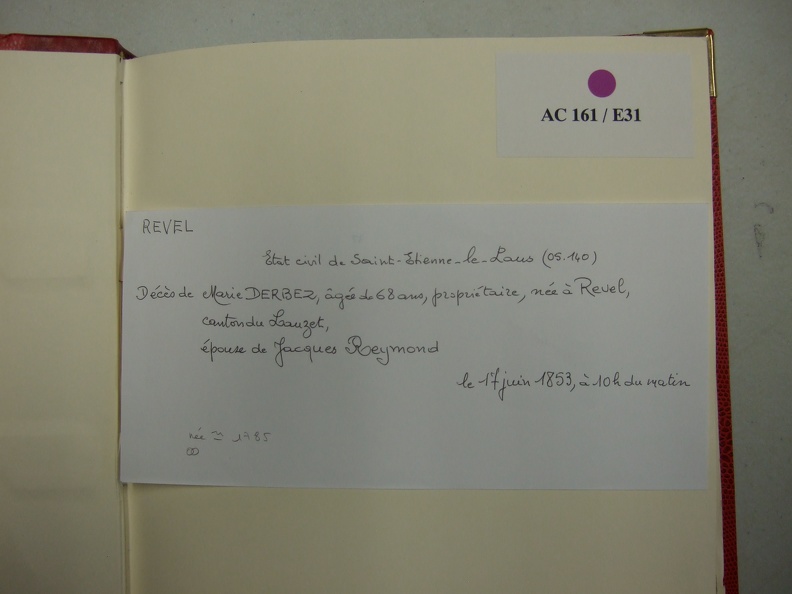 AC 161 / E31
REVEL
Etat civil de Saint-Etienne-le-Laus (05.140)
Décès de Marie DERBEZ, âgée de 68 ans, propriétaire, née à Revel,
canton du Lauzet,
épouse de Jacques Reymond
le 17 juin 1853, à 10h du matin
née ≃ 1985
∞